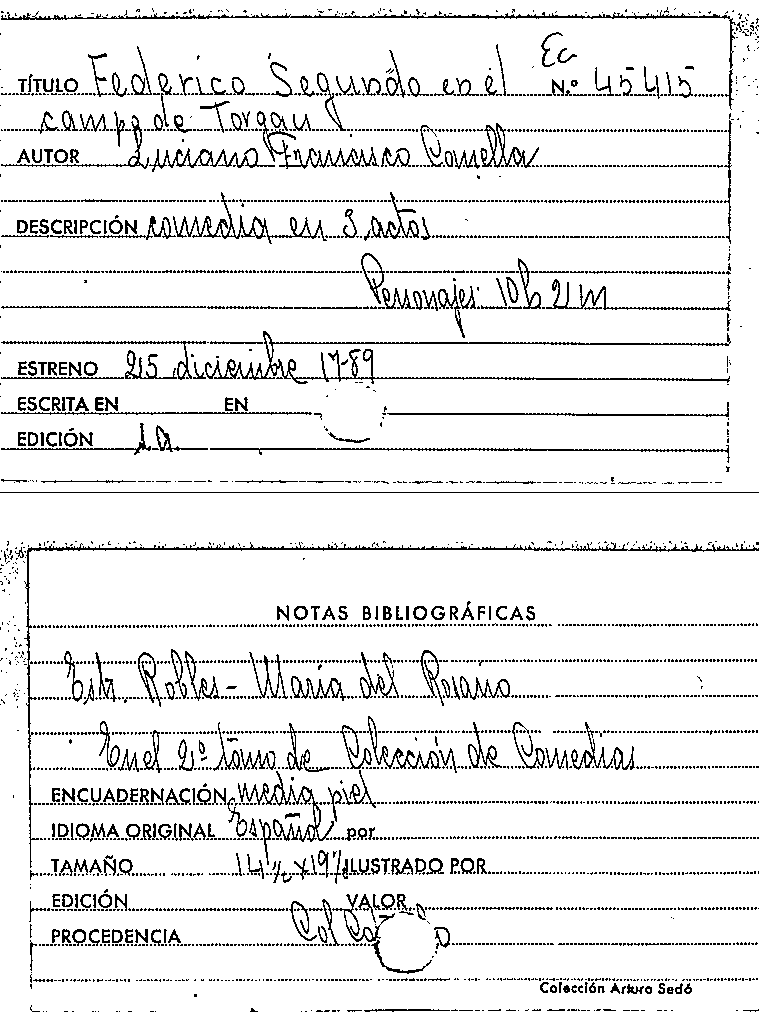 Ec
TÍTULO Federico Segundo en el Nº 45415
campo de Torgau
AUTOR Luciano Francisco Comella
DESCRIPCIÓN comedia en 3 actos
Personajes: 10 h 2 m
ESTRENO 25 diciembre 1789
ESCRITA EN EN
EDICIÓN 1a.
NOTAS BIBLIOGRÁFICAS
Estr. Robles - María del Rosario
En el 2º tomo de Colección de Comedias
ENCUADERNACIÓN media piel
IDIOMA ORIGINAL Español por
TAMAÑO 14½ x 19½ ILUSTRADO POR
EDICIÓN VALOR
PROCEDENCIA Col
Colección Arturo Sedó